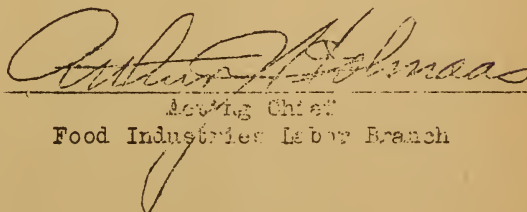 Arthur J. Holmaas
Acting Chief
Food Industries Labor Branch